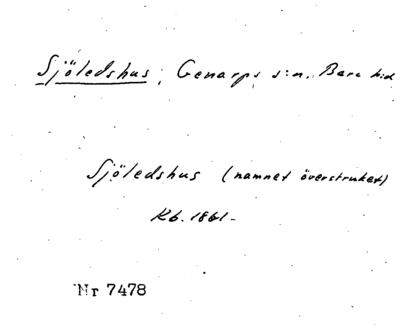 Sjöledshus, Genarps s:n, Bara hd
Sjöledshus (namnet överstruket)
Kb. 1861-
Nr 7478